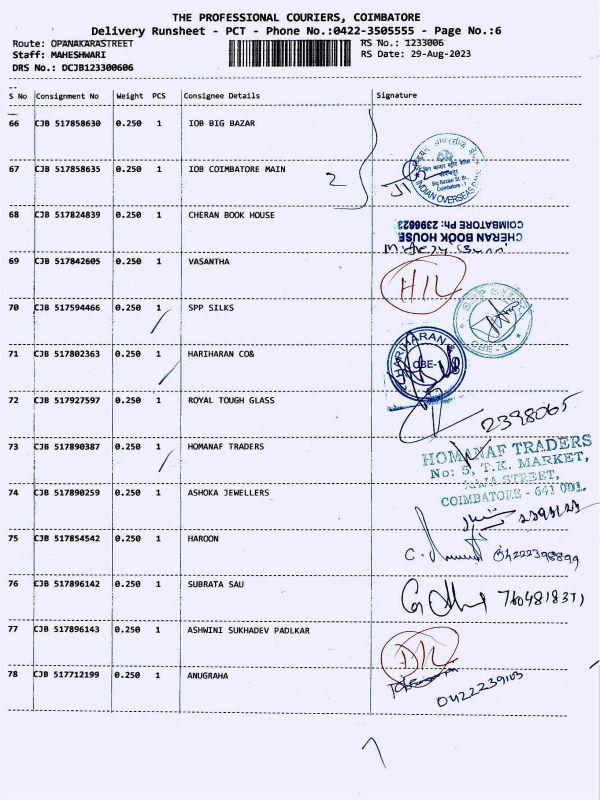 THE PROFESSIONAL COURIERS, COIMBATORE
Delivery Runsheet - PCT - Phone No.:0422-3505555 - Page No.:6
Route: OPANAKARASTREET RS No.: 1233006
Staff: MAHESHWARI RS Date: 29-Aug-2023
DRS No.: DCJB123300606
S No Consignment No Weight PCS Consignee Details Signature
66 CJB 517858630 0.250 1 IOB BIG BAZAR
67 CJB 517858635 0.250 1 IOB COIMBATORE MAIN 2
INDIAN OVERSEAS
68 CJB 517824839 0.250 1 CHERAN BOOK HOUSE
CHERAN BOOK HOUSE
COIMBATORE Ph: 2396623
69 CJB 517842605 0.250 1 VASANTHA
H/L
70 CJB 517594466 0.250 1 SPP SILKS
CBE - 1
71 CJB 517802363 0.250 1 HARIHARAN CO&
HARIHARAN
CBE-1
72 CJB 517927597 0.250 1 ROYAL TOUGH GLASS
2398065
73 CJB 517890387 0.250 1 HOMANAF TRADERS
HOMANAF TRADERS
No: 5, T.K. MARKET,
RAJA STREET,
COIMBATORE - 641 001.
74 CJB 517890259 0.250 1 ASHOKA JEWELLERS
75 CJB 517854542 0.250 1 HAROON
04222398899
76 CJB 517896142 0.250 1 SUBRATA SAU
77 CJB 517896143 0.250 1 ASHWINI SUKHADEV PADLKAR
D/L
78 CJB 517712199 0.250 1 ANUGRAHA